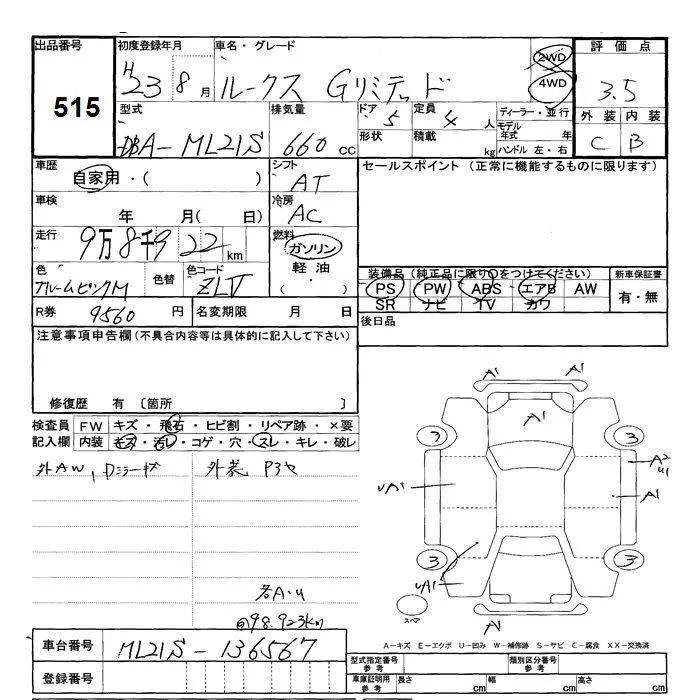 出品番号 初度登録年月 車名・グレード 評価点
515 H23 8月 ルークス Gリミテッド 2WD 4WD 3.5
型式 排気量 ドア 定員 ディーラー・並行 外装 内装
DBA-ML21S 660cc 5 4人 モデル年式 年 C B
形状 積載 kg ハンドル 左・右
車歴 シフト セールスポイント (正常に機能するものに限ります)
自家用・( ) AT
車検 冷房
年 月( 日) AC
走行 燃料
9万8千9 22km ガソリン
色 色替 色コード 軽油 装備品(純正品に限り○をつけてください) 新車保証書
ZLV ( ・ ) PS PW ABS エアB AW 有・無
SR ナビ TV カワ
R券 9560円 名変期限 月 日 後日品
注意事項申告欄(不具合内容等は具体的に記入して下さい)
修復歴 有 〔箇所 〕
検査員 FW キズ・飛石・ヒビ割・リペア跡・×要
記入欄 内装 キズ・汚レ・コゲ・穴・スレ・キレ・破レ
外AW、Dミラーキズ 外装 Pヨセ
A1 A1
A1
3 3
A2
U1
UA1 A1
3 3
UA1
スペア
A1
各A・U
@98.923km
車台番号 ML21S-136567
登録番号
A-キズ E-エクボ U-凹み W-補修跡 S-サビ C-腐食 XX-交換済
型式指定番号 参考 類別区分番号 参考
車庫証明用 参考 長さ cm 幅 cm 高さ cm